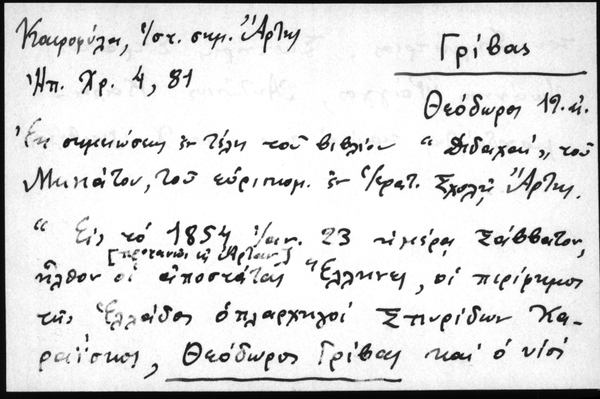 Καιροφύλα, ἱστ. σημ. Ἄρτης
Γρίβας
Ἠπ. Χρ. 4, 81
Θεόδωρος 19. κ.
Ἐκ σημειώσεως ἐν τέλει τοῦ βιβλίου "Διδαχαί" τοῦ
Μηνιάτου, τοῦ εὑρισκομ. ἐν Ἱερατ. Σχολῇ Ἄρτης.
"Εἰς τὸ 1854 Ἰαν. 23 ἡμέρα Σάββατον,
ἦλθον οἱ ἀποστάται Ἕλληνες, οἱ περίφημοι
τῆς Ἑλλάδος ὁπλαρχηγοὶ Σπυρίδων Κα-
ραΐσκος, Θεόδωρος Γρίβας καὶ ὁ υἱός